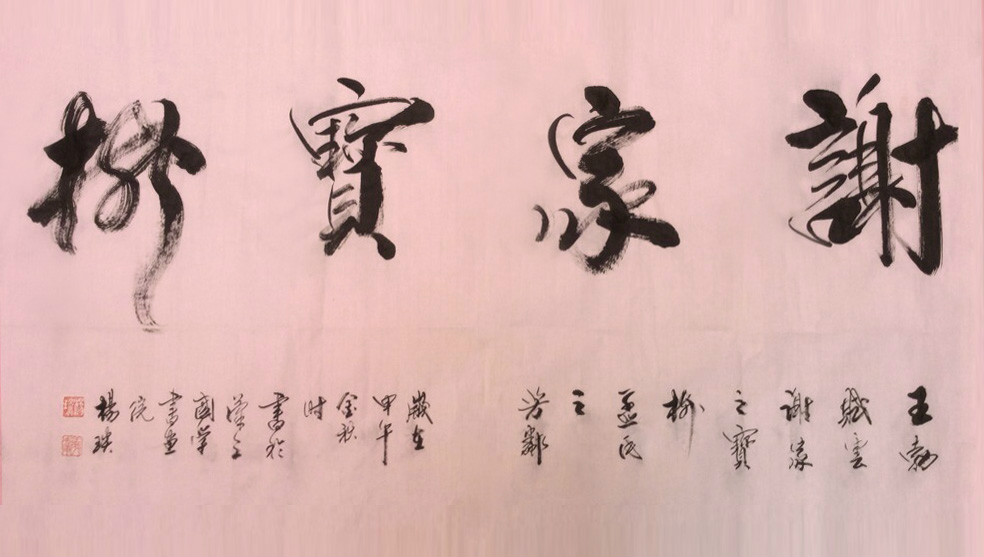 謝家寶樹
王勃
賦雲
謝家
之寶
樹
孟氏
之
芳鄰
歲在
甲午
金秋
时
書於
漢之
國学
書畫
院
楊